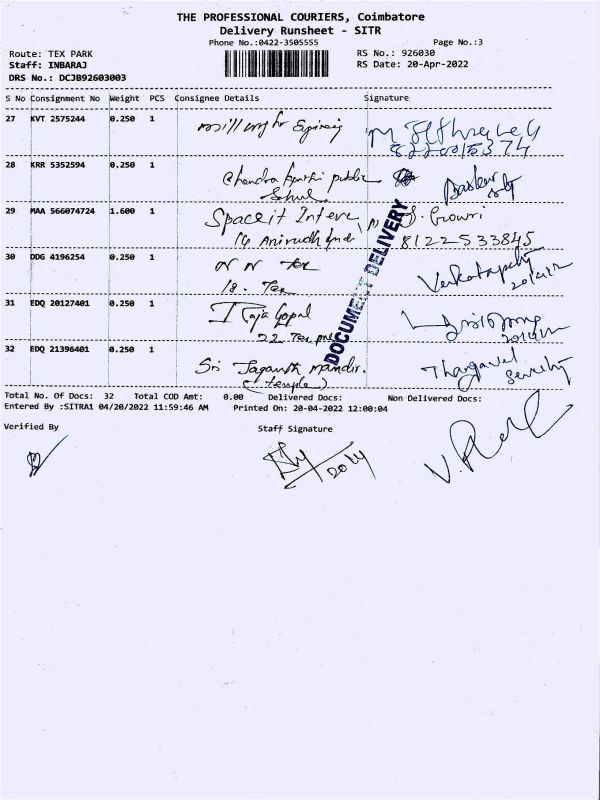 THE PROFESSIONAL COURIERS, Coimbatore
Delivery Runsheet - SITR
Phone No.:0422-3505555
Page No.:3
Route: TEX PARK
RS No.: 926030
Staff: INBARAJ
RS Date: 20-Apr-2022
DRS No.: DCJB92603003
S No Consignment No Weight PCS Consignee Details Signature
27 KVT 2575244 0.250 1
28 KRR 5352594 0.250 1
Chandra public
29 MAA 566074724 1.600 1
Spaceit
Gowri
8122533845
30 DDG 4196254 0.250 1
N N Tex
18. Tex
31 EDQ 20127401 0.250 1
Raja Gopal
22 Tex
32 EDQ 21396401 0.250 1
Sri Jaganath Mandir.
(temple)
Thangavel
Security
DOCUMENT DELIVERY
Total No. Of Docs: 32 Total COD Amt: 0.00 Delivered Docs: Non Delivered Docs:
Entered By :SITRA1 04/20/2022 11:59:46 AM Printed On: 20-04-2022 12:00:04
Verified By
Staff Signature